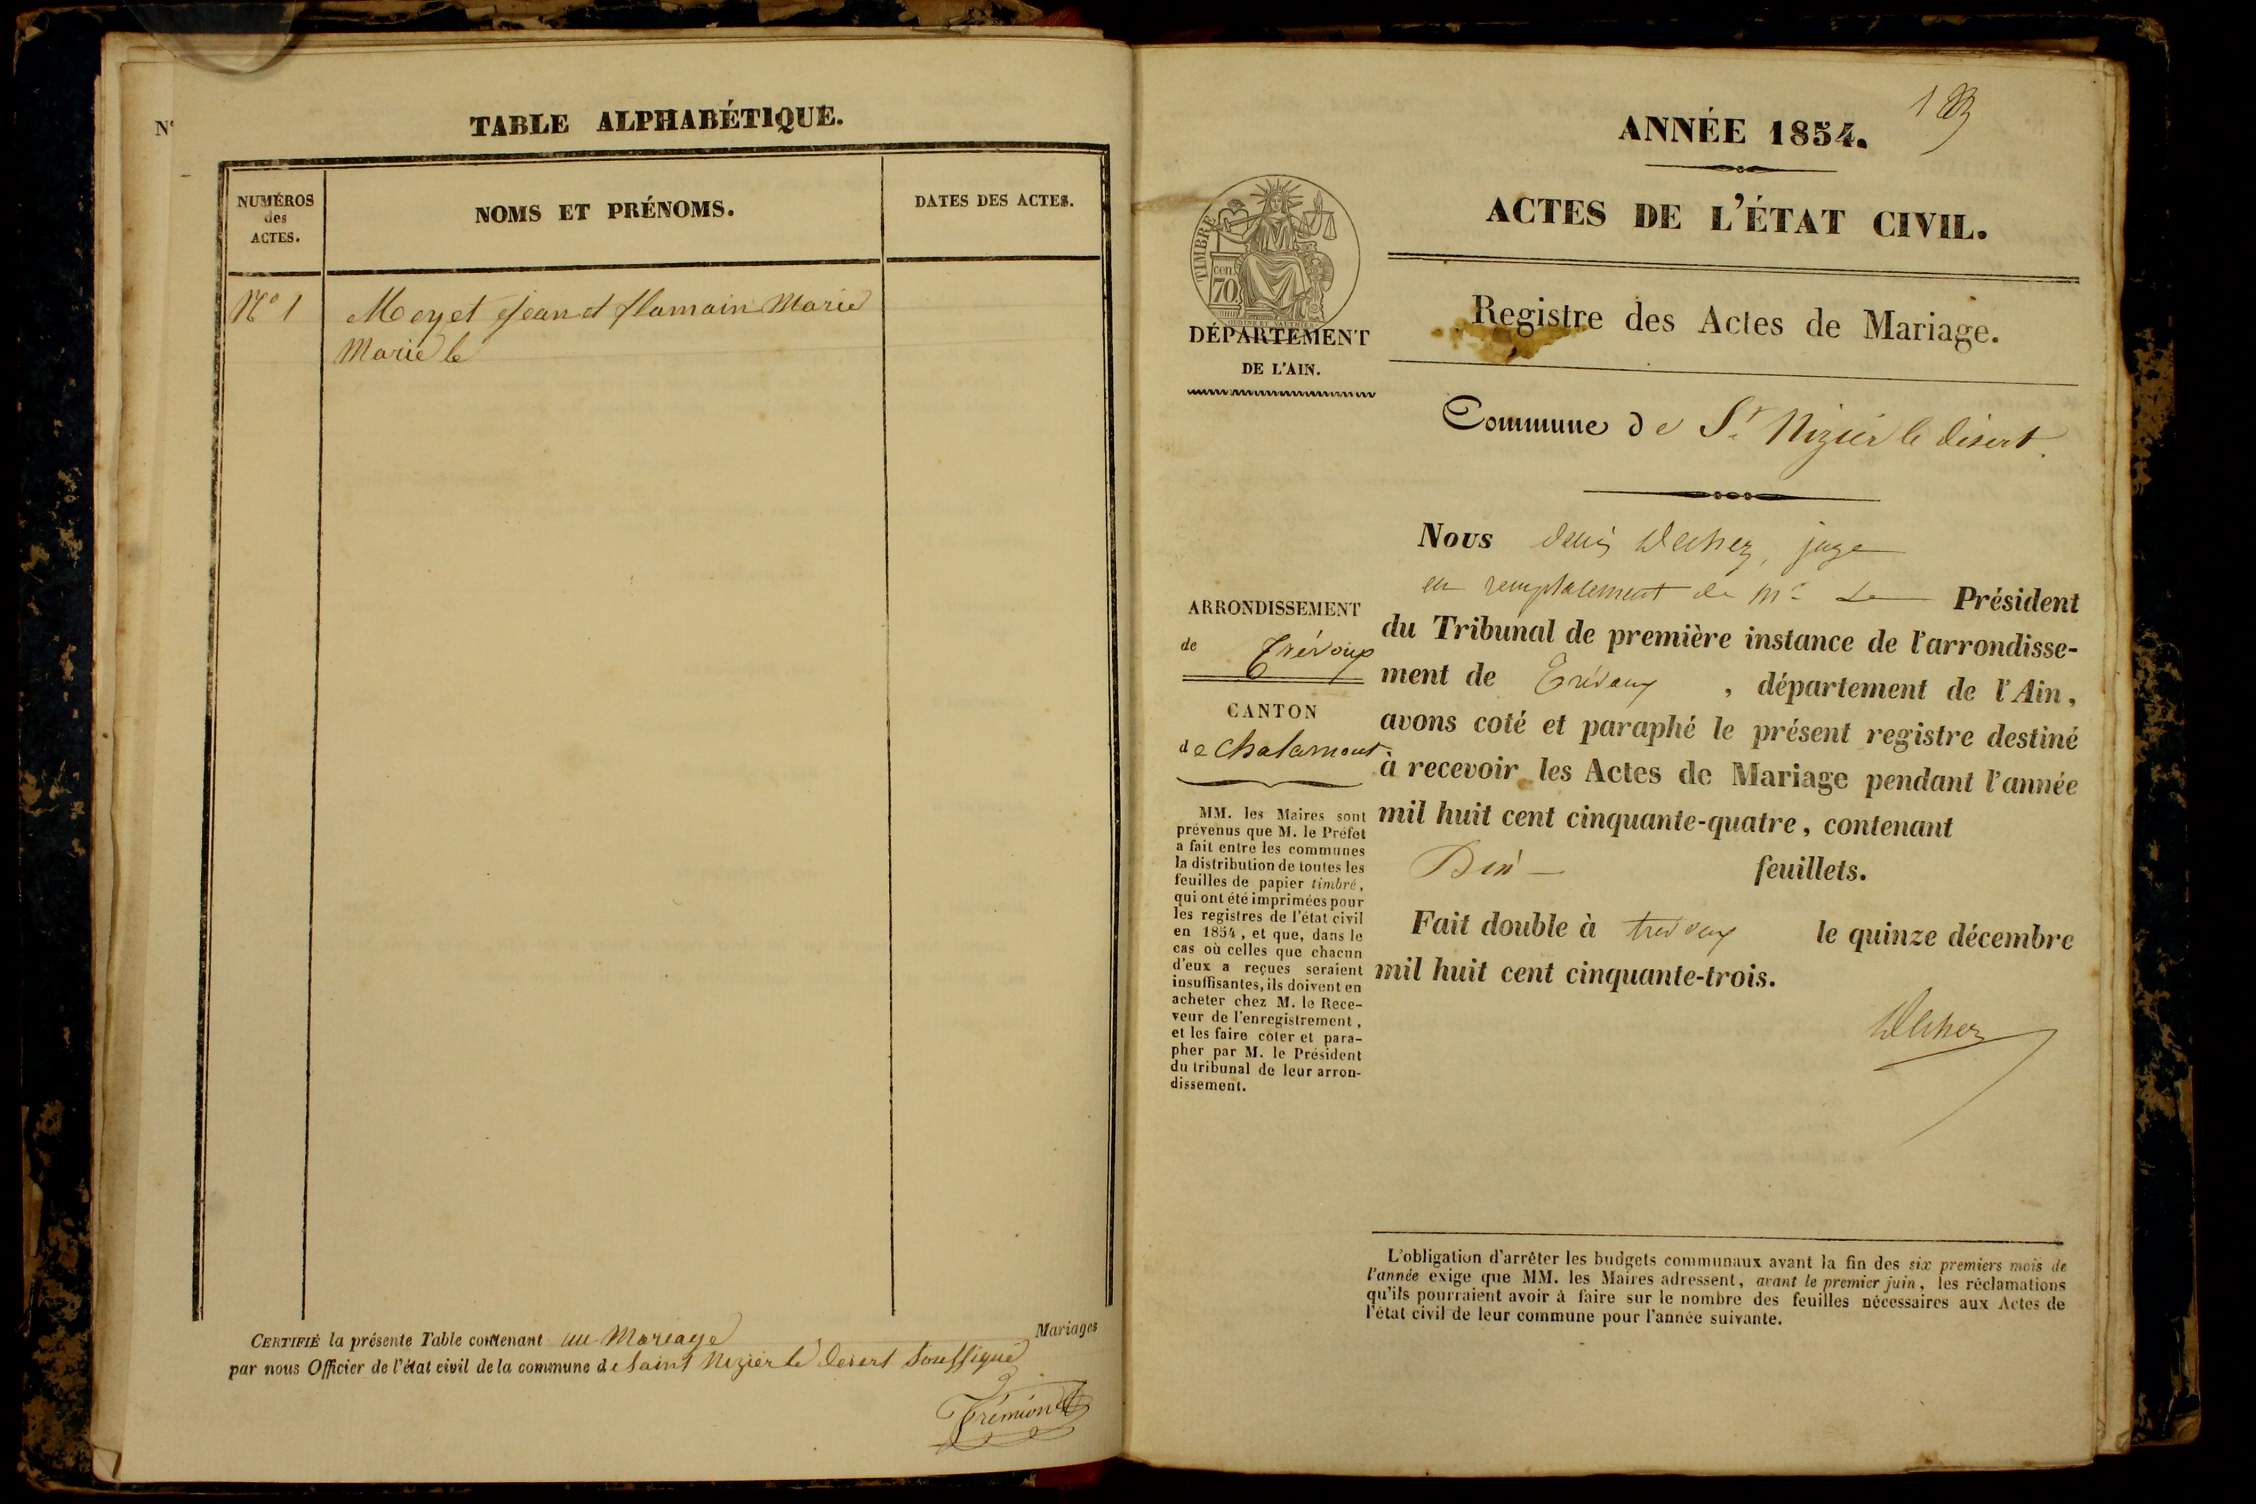 N°
TABLE ALPHABÉTIQUE.
NUMÉROS
des
ACTES.
NOMS ET PRÉNOMS.
DATES DES ACTES.
N° 1
Moyet Jean et flamain Marie
Marie le
CERTIFIÉ la présente Table contenant un Mariage Mariages
par nous Officier de l'état civil de la commune de Saint Nizier le Désert Soussigné
Trémion
ANNÉE 1854.
ACTES DE L'ÉTAT CIVIL.
TIMBRE
cen.
70
DÉPARTEMENT
DE L'AIN.
Registre des Actes de Mariage.
Commune de St Nizier le désert.
ARRONDISSEMENT
de Trévoux
CANTON
de Chalamont
MM. les Maires sont
prévenus que M. le Préfet
a fait entre les communes
la distribution de toutes les
feuilles de papier timbré,
qui ont été imprimées pour
les registres de l'état civil
en 1854, et que, dans le
cas où celles que chacun
d'eux a reçues seraient
insuffisantes, ils doivent en
acheter chez M. le Rece-
veur de l'enregistrement,
et les faire coter et para-
pher par M. le Président
du tribunal de leur arron-
dissement.
Nous juge
en remplacement de Mr Le Président
du Tribunal de première instance de l'arrondisse-
ment de Trévoux, département de l'Ain,
avons coté et paraphé le présent registre destiné
à recevoir les Actes de Mariage pendant l'année
mil huit cent cinquante-quatre, contenant
feuillets.
Fait double à trévoux le quinze décembre
mil huit cent cinquante-trois.
L'obligation d'arrêter les budgets communaux avant la fin des six premiers mois de
l'année exige que MM. les Maires adressent, avant le premier juin, les réclamations
qu'ils pourraient avoir à faire sur le nombre des feuilles nécessaires aux Actes de
l'état civil de leur commune pour l'année suivante.